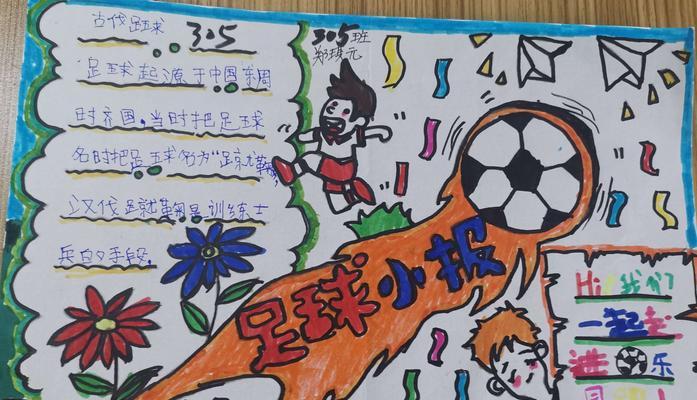 古代足球
305
305班
郑琰元
足球起源于中国东周
时齐国,当时把足球
名时把足球名为"
汉代足就鞠是训练士
兵的手段。
足球小报
Hi!我们
一起
进 乐